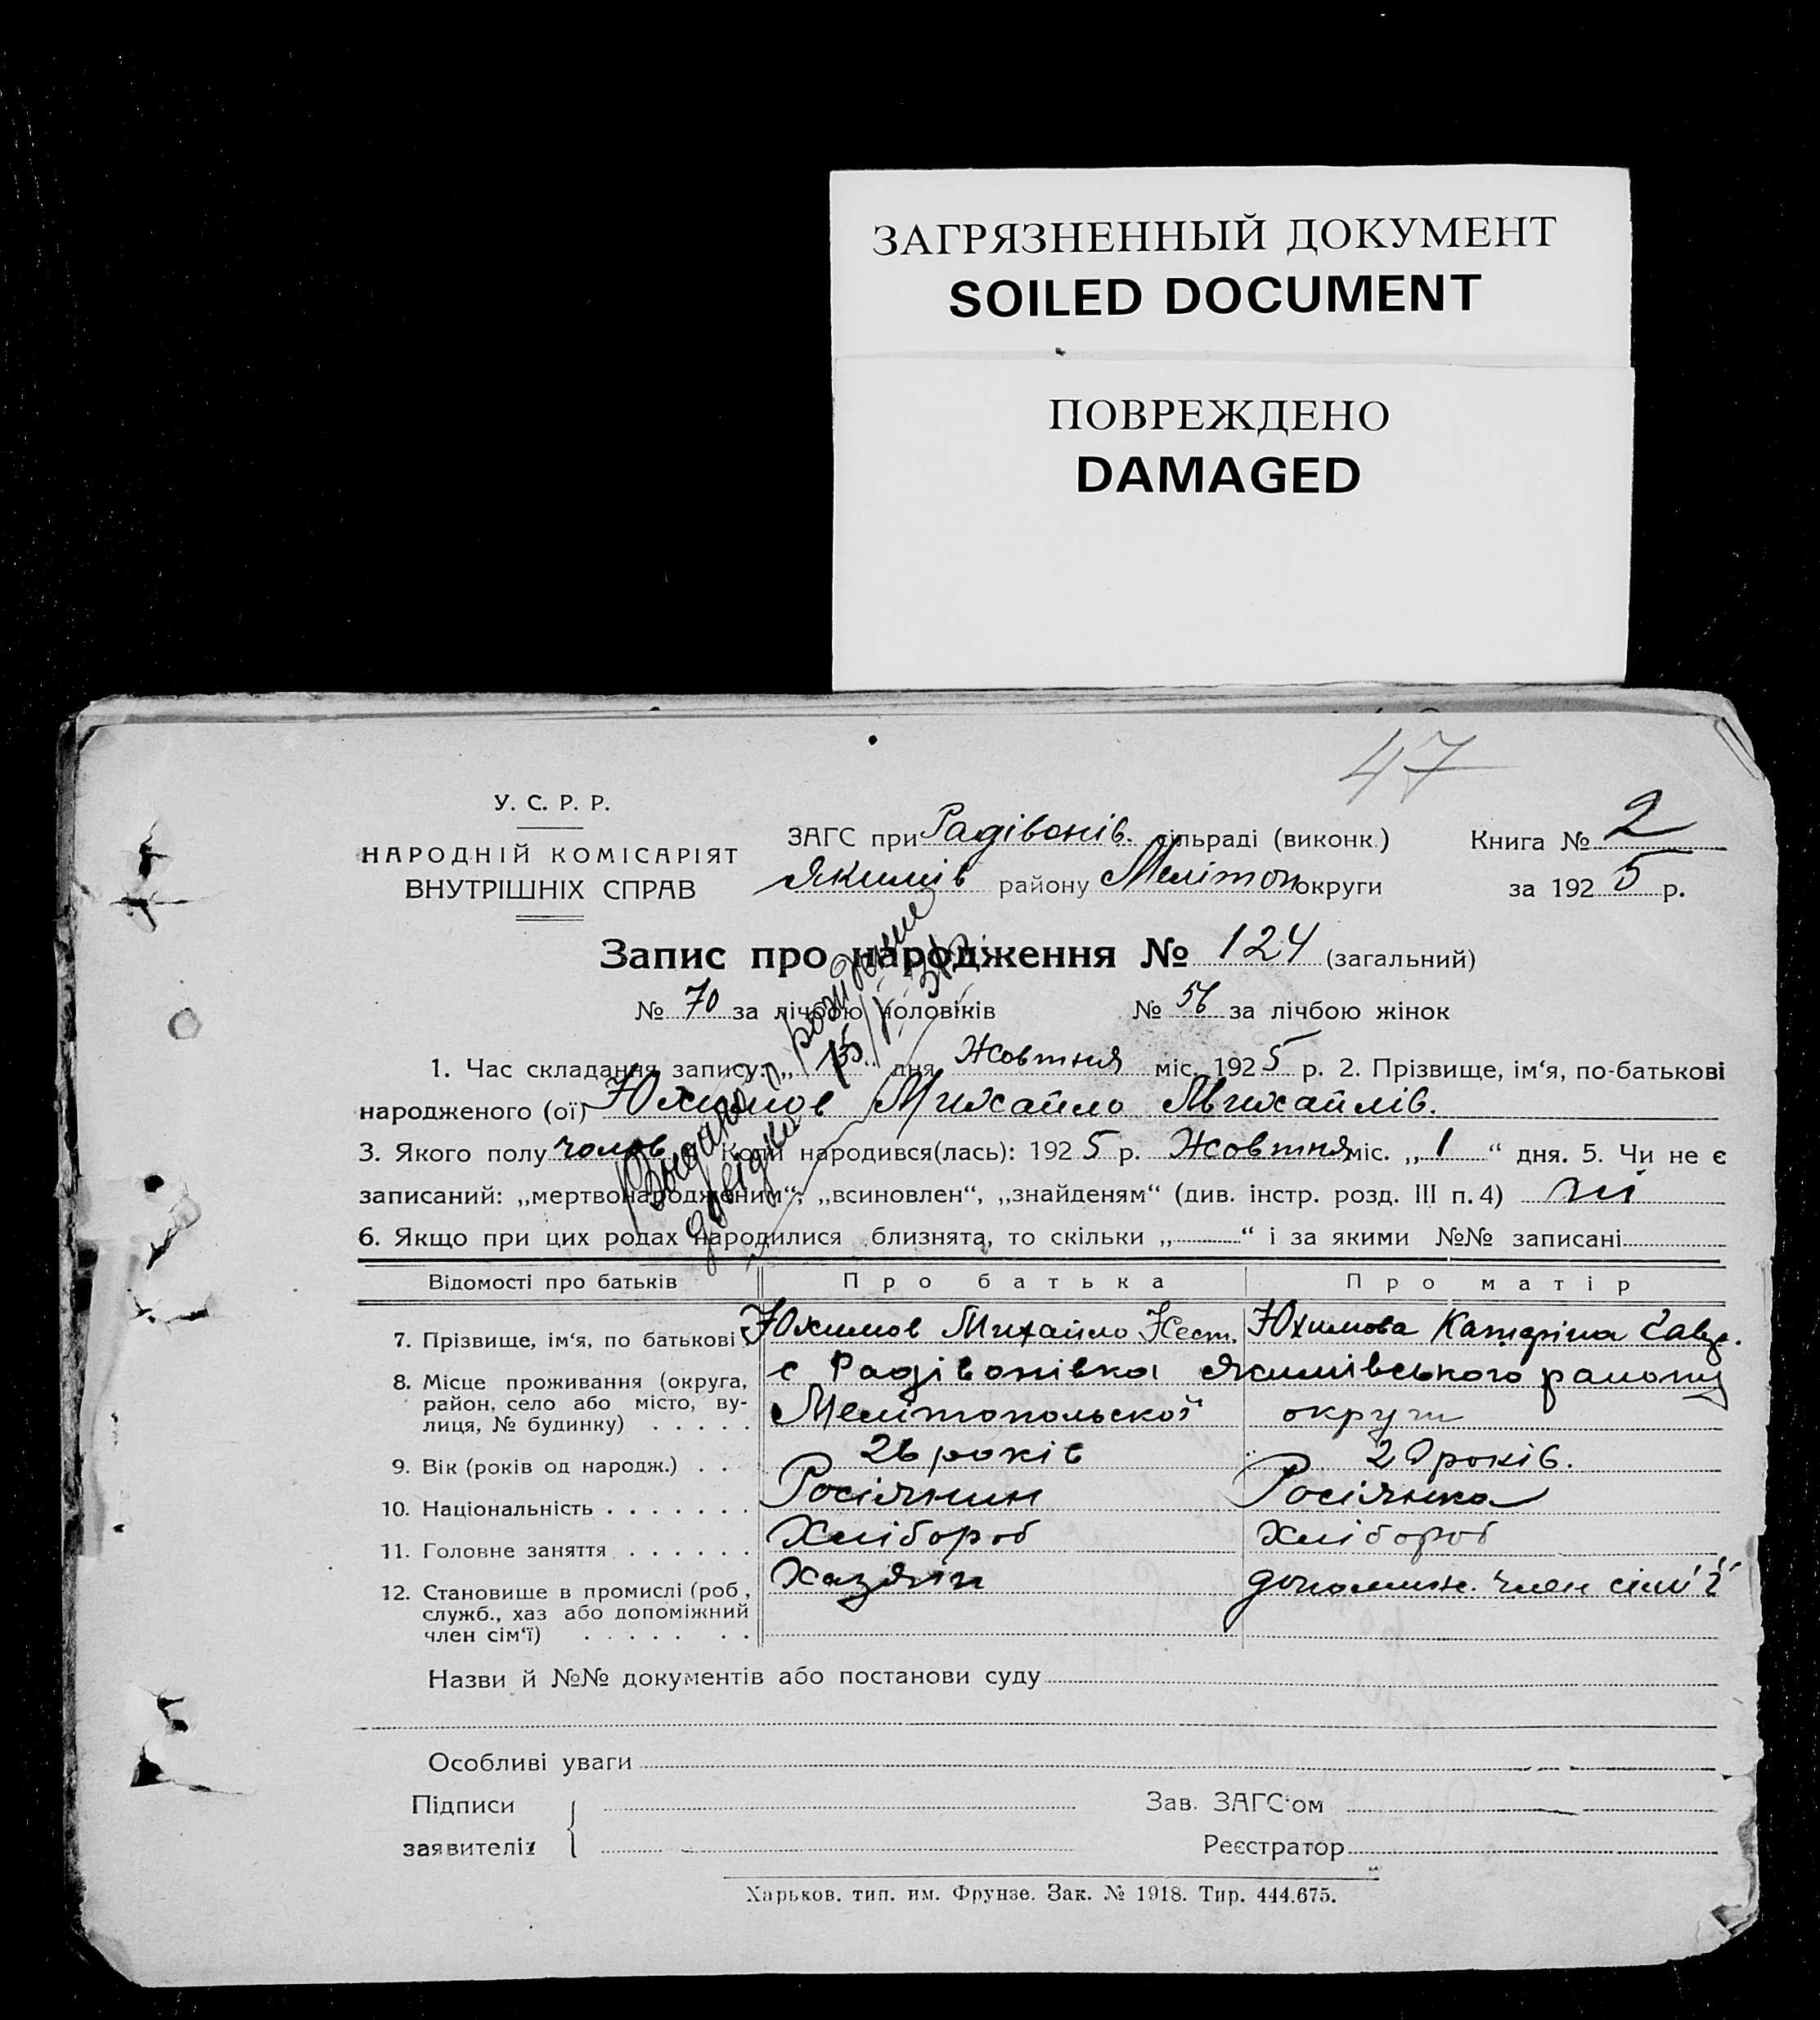 ЗАГРЯЗНЕННЫЙ ДОКУМЕНТ
SOILED DOCUMENT
ПОВРЕЖДЕНО
DAMAGED
47
У. С. Р. Р.
НАРОДНІЙ КОМІСАРІЯТ
ВНУТРІШНІХ СПРАВ
ЗАГС при Радівонів. сільраді (виконк.)
Якимів району Мелітоп округи
Книга № 2
за 1925 р.
Запис про народження № 124 (загальний)
№ 70 за лічбою чоловіків № 56 за лічбою жінок
1. Час складання запису: „15“ дня Жовтня міс. 1925 р. 2. Прізвище, ім‘я, по-батькові
народженого (ої) Юхимов Михайло Михайлів.
3. Якого полу чолов. Коли народився(лась): 1925 р. Жовтня міс. „1“ дня. 5. Чи не є
записаний: „мертвонародженим“; „всиновлен“, „знайденям“ (див. інстр. розд. III п. 4) ні
6. Якщо при цих родах народилися близнята, то скільки „ “ і за якими №№ записані
Відомості про батьків Про батька Про матір
7. Прізвище, ім‘я, по батькові Юхимов Михайло Нест. Юхимова Катеріна
8. Місце проживання (округа, с Радівонівка Якимівського району
район, село або місто, ву-
лиця, № будинку) Мелітопольської округи
9. Вік (років од народж.) 26 років 20 років.
10. Національність Росіянин Росіянка
11. Головне заняття Хлібороб Хлібороб
12. Становище в промислі (роб, Хазяїн допоміжн. член сім'ї
служб., хаз або допоміжний
член сім‘ї)
Назви й №№ документів або постанови суду
Особливі уваги
Підписи Зав. ЗАГС‘ом
заявителів Реєстратор
Харьков. тип. им. Фрунзе. Зак. № 1918. Тир. 444.675.